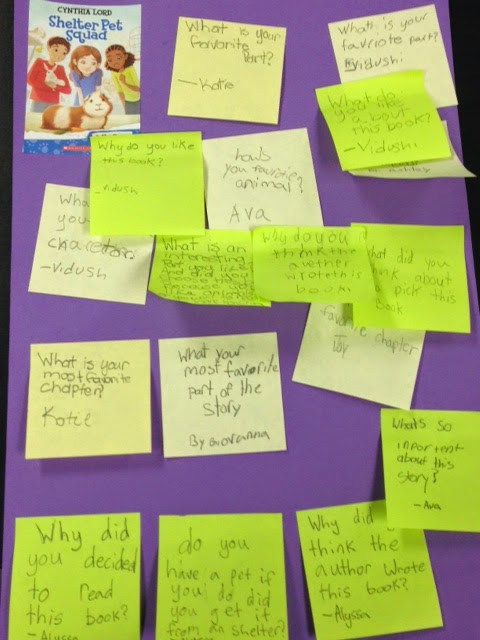 CYNTHIA LORD
Shelter Pet
Squad
SCHOLASTIC
What is your
favorite
part?
—Katie
What is your
favriote part?
—Vidushi
What do
you like
a bout
this book?
—Vidushi
Why do you like
this book?
-Vidush
how's
you favorite
animal?
AVA
What
you
charetors
—Vidush
What is an
interesting
part you like
And did you
choose this
because you
like animals
why do you
think the
auther
wrote this
book
What did you
think about
pick this
book
favorite chapter
What is your
most favorite
chapter?
Katie
What your
most favorite
part of the
story
By Giovanna
What's so
inportent
about this
story?
-Ava
Why did
you decided
to read
this book?
-Alyssa
do you
have a pet if
you do did
you get it
from an shelter?
Why did
think the
author wrote
this book?
-Alyssa